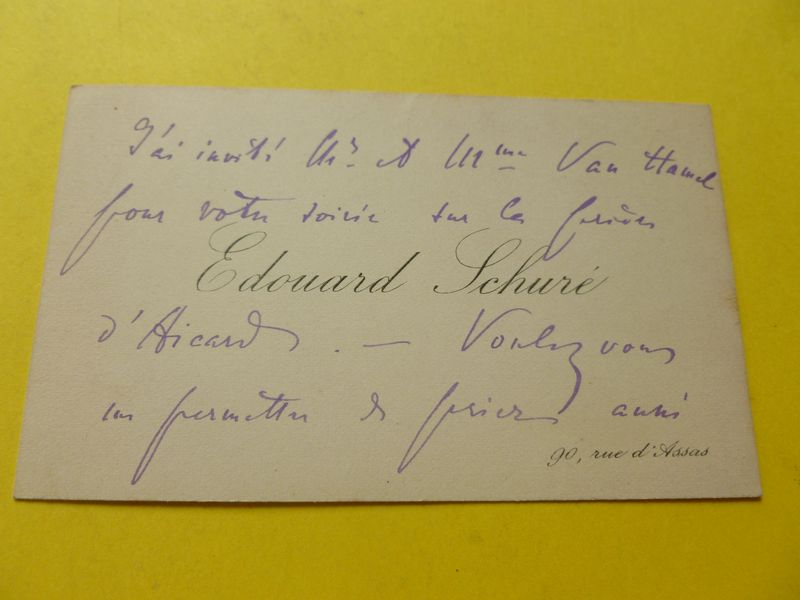 J'ai invité Mr et Mme Van Hamel
pour votre soirée sur la prière
Edouard Schuré
d'Aicard. — Voulez vous
me permettre de prier aussi
90, rue d'Assas